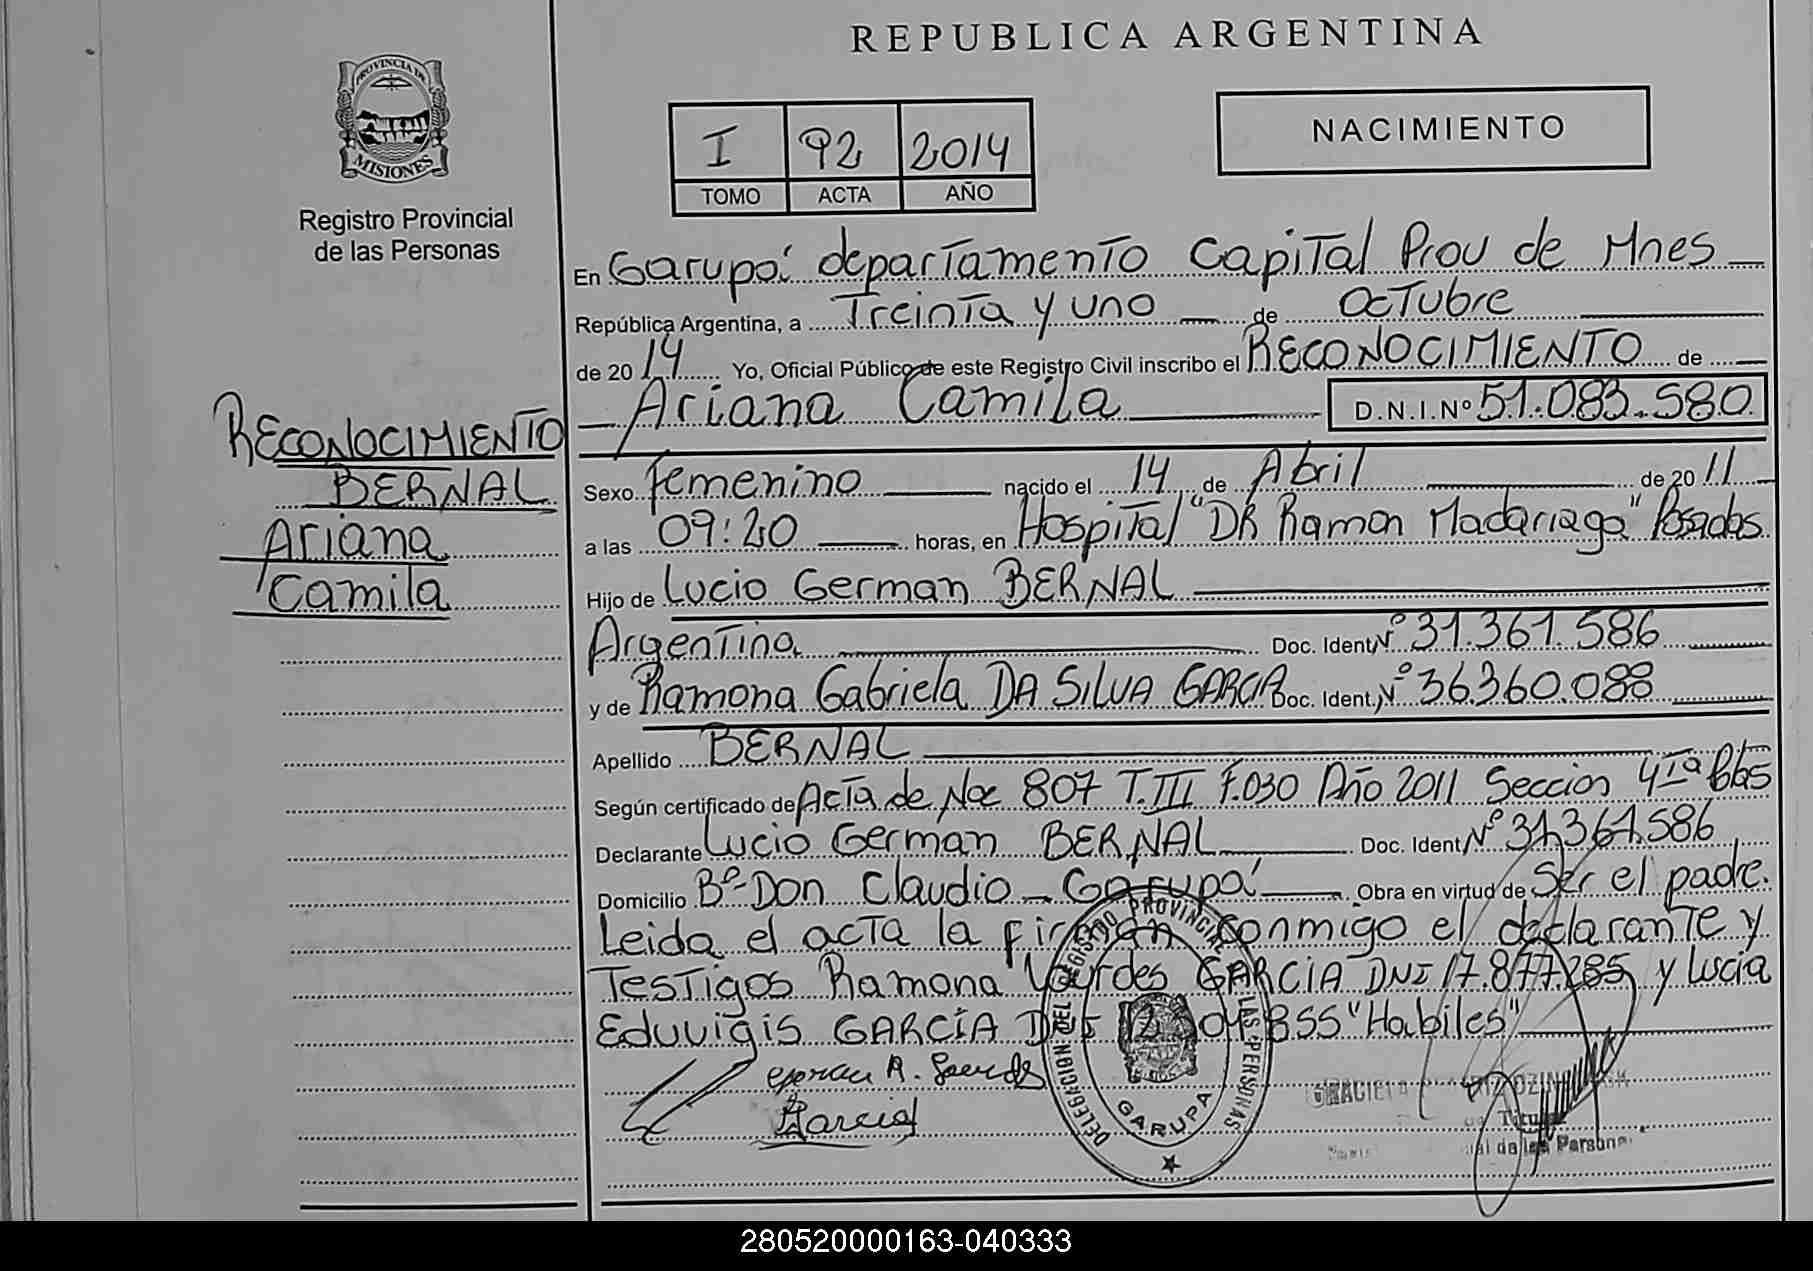 REPUBLICA ARGENTINA
PROVINCIA DE
MISIONES
Registro Provincial
de las Personas
I 92 2014
TOMO ACTA AÑO
NACIMIENTO
En Garupá departamento Capital Prov de Mnes
República Argentina, a Treinta y uno de Octubre
de 2014 Yo, Oficial Público de este Registro Civil inscribo el RECONOCIMIENTO de
Ariana Camila D.N.I.Nº 51.083.580
RECONOCIMIENTO
BERNAL
Ariana
Camila
Sexo Femenino nacido el 14 de Abril de 2011
a las 09:20 horas, en Hospital "DR Ramon Madariaga" Posadas
Hijo de Lucio German BERNAL
Argentina Doc. Ident Nº 31.361.586
y de Ramona Gabriela DA SILVA GARCIA Doc. Ident. Nº 36.360.088
Apellido BERNAL
Según certificado de Acta de Nac 807 T.III F.030 Año 2011 Seccion 4ta Pdas
Declarante Lucio German BERNAL Doc. Ident Nº 31.361.586
Domicilio Bº Don Claudio - Garupá Obra en virtud de Ser el padre.
Leida el acta la firman conmigo el declarante y
Testigos Ramona Lourdes GARCIA DNI 17.877.285 y Lucia
Eduvigis GARCÍA "Habiles"
Garcia
DELEGACION DEL REGISTRO PROVINCIAL DE LAS PERSONAS
GARUPA
GRACIELA
Titular
de las Personas
280520000163-040333